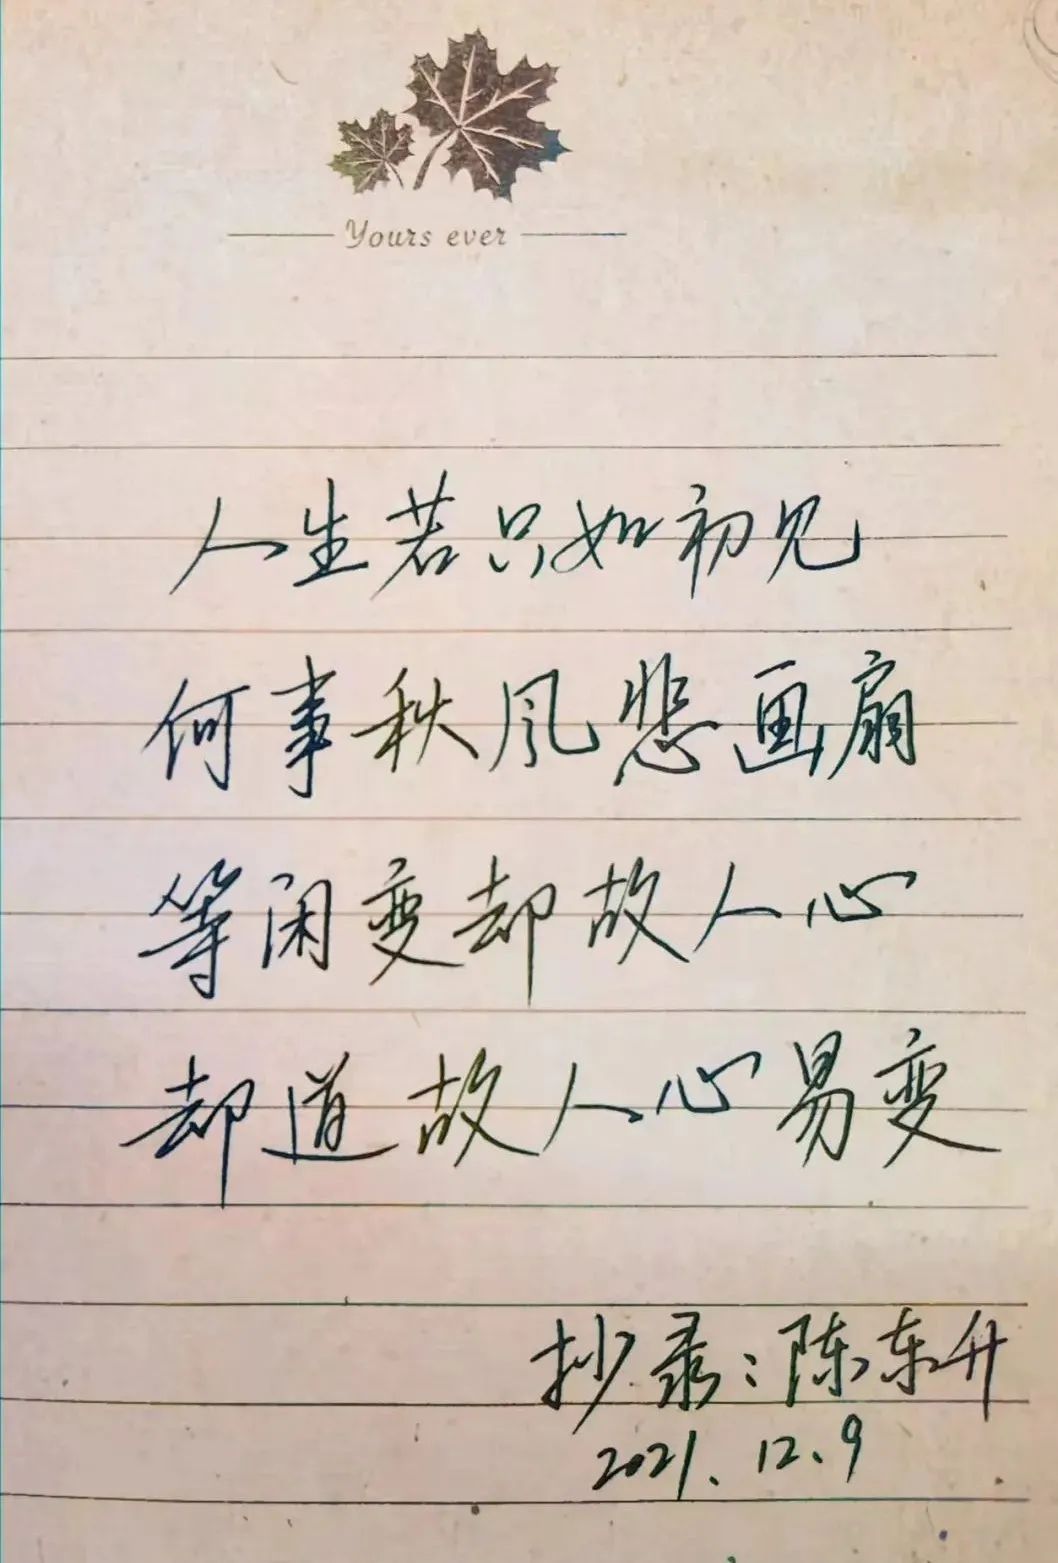 Yours ever
人生若只如初见
何事秋风悲画扇
等闲变却故人心
却道故人心易变
抄录：陈东升
2021.12.9